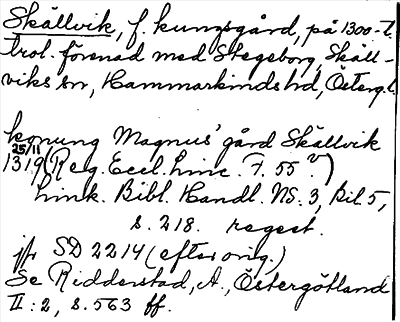 Skällvik, f. kungsgård, på 1300-t.
trol. förenad med Stegeborg, Skäll-
viks sn, Hammarkinds hd, Österg.l.
konung Magnus' gård Skällvik
25/11
1319 (Reg. Eccl. Linc. F. 55 v)
Link. Bibl. Handl. NS. 3, Bil. 5,
s. 218. regest.
jfr SD 2214 (efter orig.)
Se Ridderstad, A., Östergötland
II: 2, s. 563 ff.